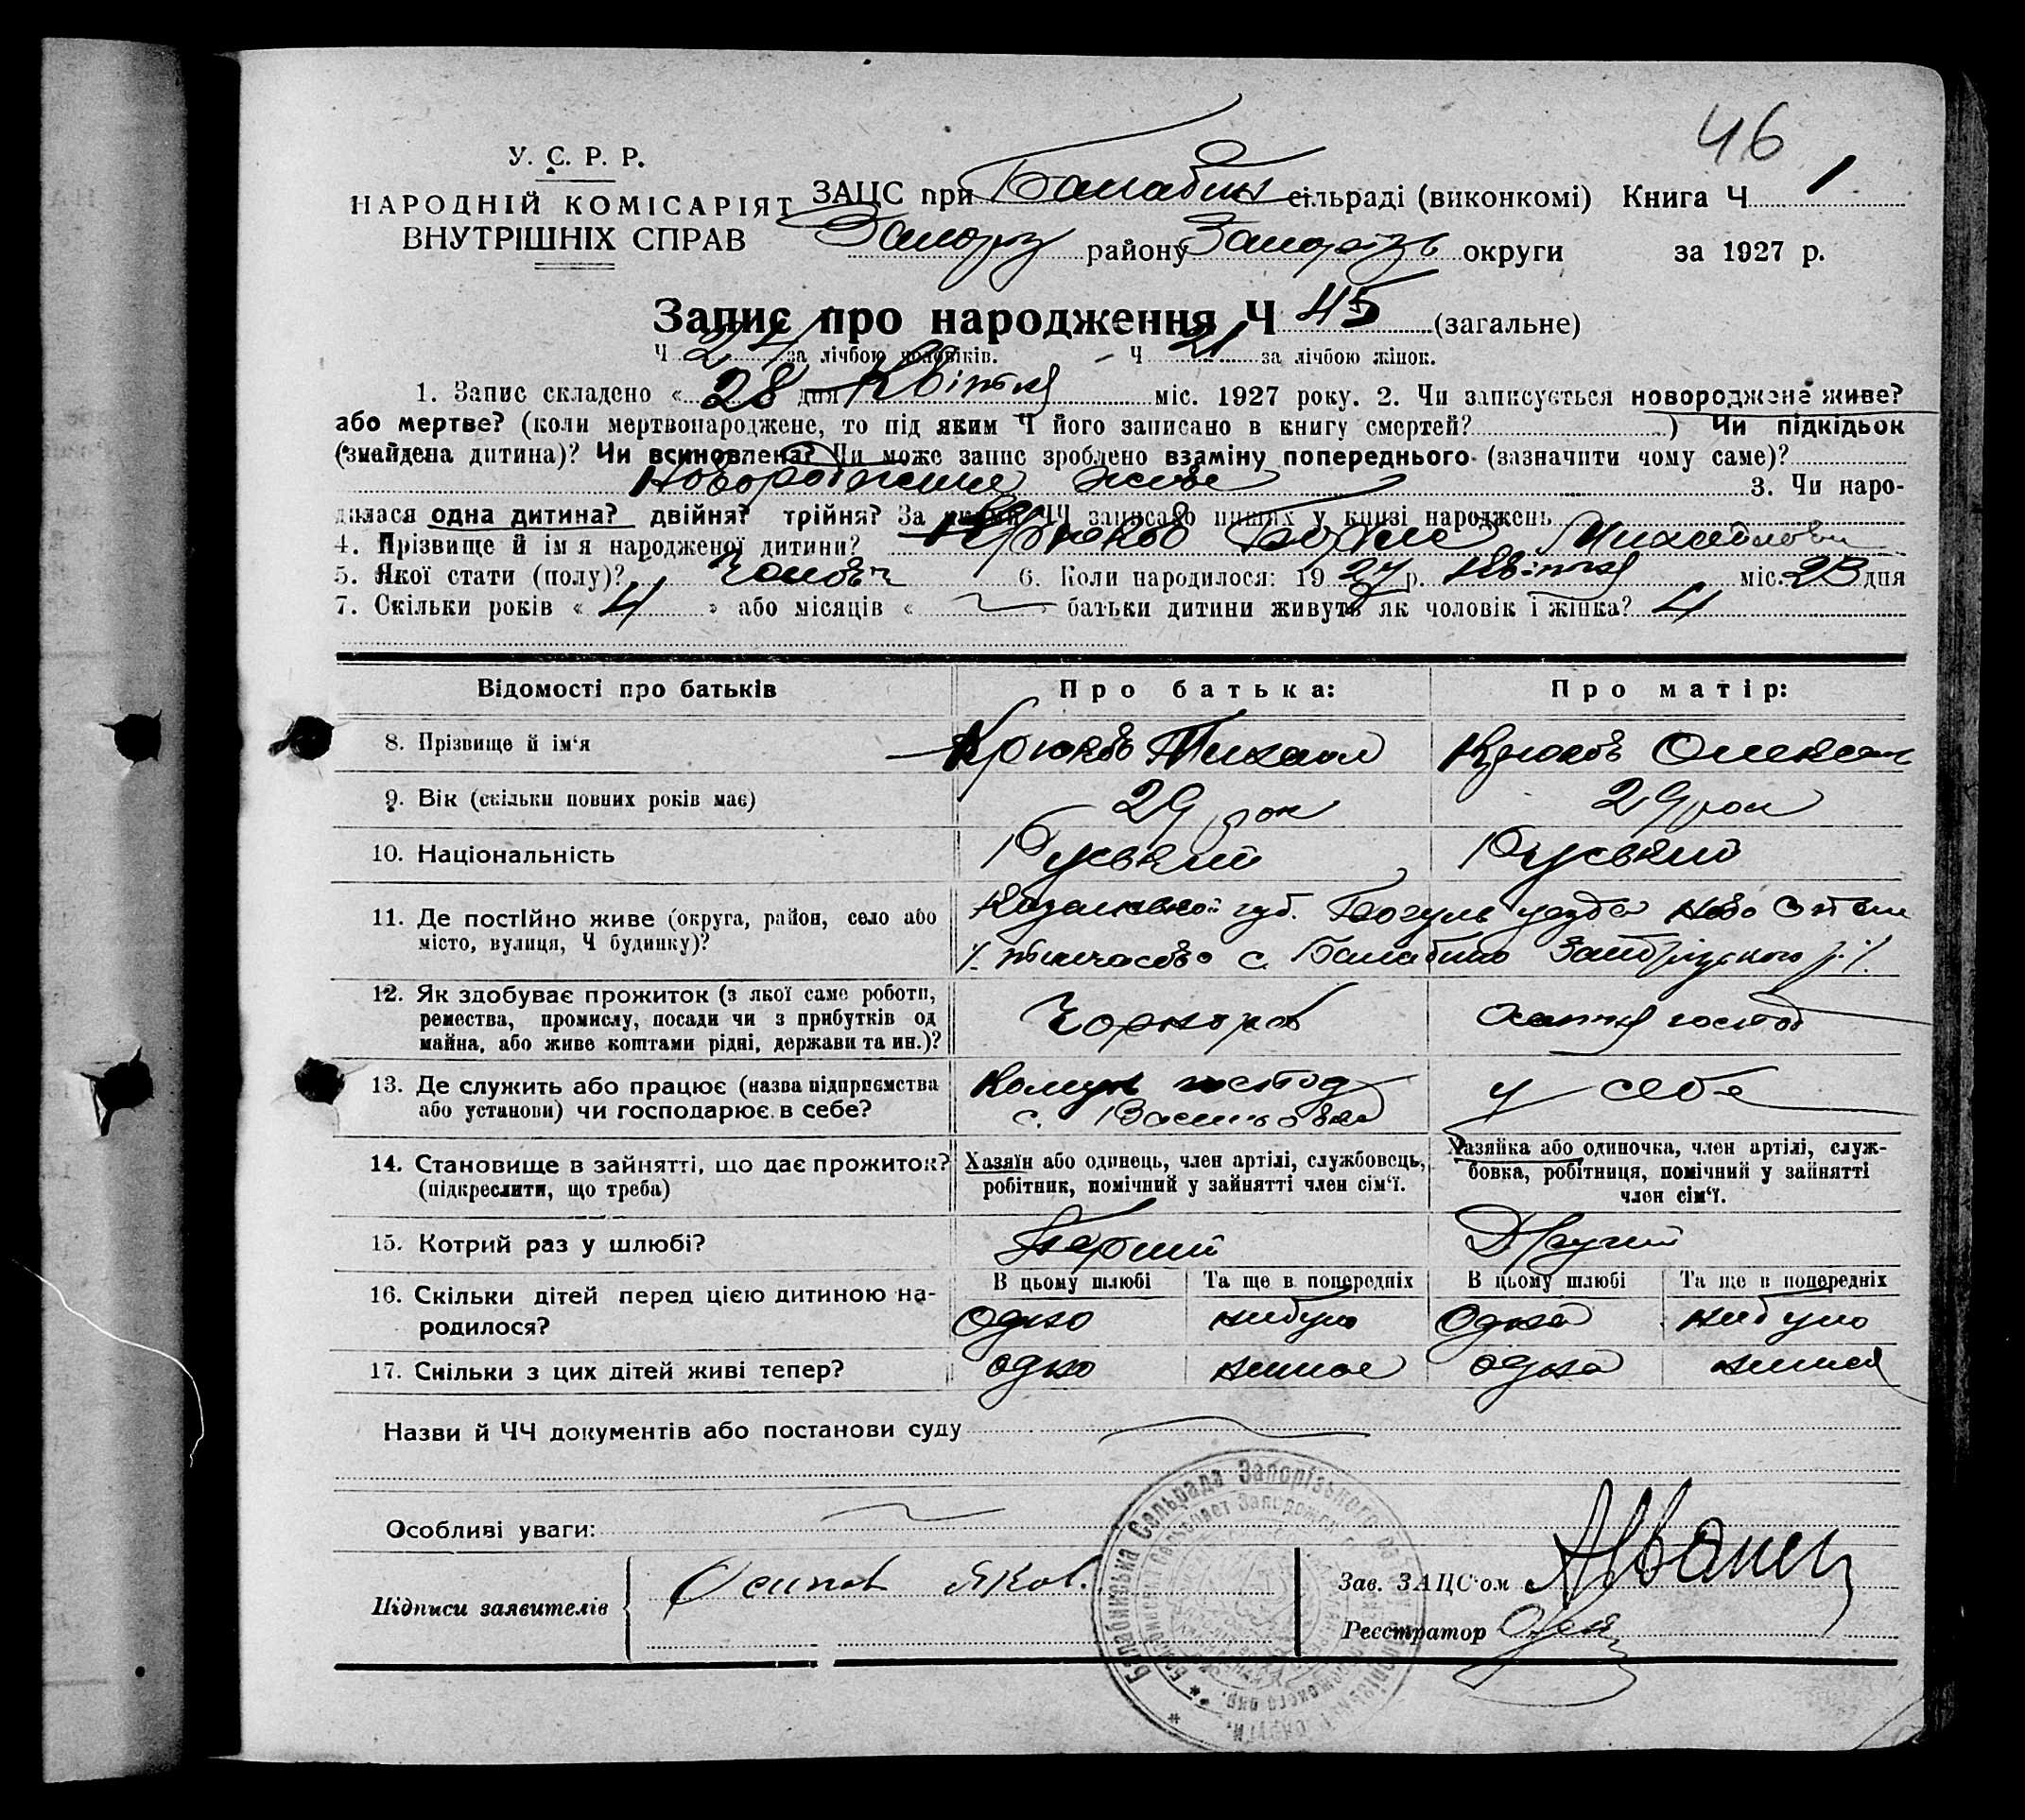 46
У. С. Р. Р.
НАРОДНІЙ КОМІСАРІЯТ
ВНУТРІШНІХ СПРАВ
ЗАЦС при Балабин сільраді (виконкомі) Книга Ч 1
Запоріз району Запорізь округи за 1927 р.
Запис про народження Ч 45 (загальне)
Ч 24 за лічбою чоловіків. – Ч 21 за лічбою жінок.
1. Запис складено « 28 дня Квітня міс. 1927 року. 2. Чи записується новороджене живе?
або мертве? (коли мертвонароджене, то під яким Ч його записано в книгу смертей? ) Чи підкідьок
(знайдена дитина)? Чи всиновлена? Чи може запис зроблено взаміну попереднього (зазначити чому саме)?
Новорожденне живе 3. Чи наро-
дилася одна дитина? двійня? трійня? За якими ЧЧ записано инших у книзі народжень
4. Прізвище й ім'я народженої дитини? Крюков Борис Михайлович
5. Якої стати (полу)? Чоловіч 6. Коли народилося: 1927 р. Квітня міс. 23 дня
7. Скільки років « 4 » або місяців « » батьки дитини живуть як чоловік і жінка? 4
Відомості про батьків Про батька: Про матір:
8. Прізвище й ім'я Крюков Михаил Крюков Олексан
9. Вік (скільки повних років має) 29 рок 29 рок
10. Національність Руський Руський
11. Де постійно живе (округа, район, село або
місто, вулиця, Ч будинку)?
губ. уезда Ново
тимчасово с. Балабино Запорізького р.
12. Як здобуває прожиток (з якої саме роботи,
ремества, промислу, посади чи з прибутків од
майна, або живе коштами рідні, держави та ин.)?
Чорнороб господ
13. Де служить або працює (назва підприємства
або установи) чи господарює в себе?
Комун господ у себе
с. Васильовка
14. Становище в зайнятті, що дає прожиток?
(підкреслити, що треба)
Хазяїн або одинець, член артілі, службовець,
робітник, помічний у зайнятті член сім'ї.
Хазяйка або одиночка, член артілі, служ-
бовка, робітниця, помічний у зайнятті
член сім'ї.
15. Котрий раз у шлюбі? Перший Другий
В цьому шлюбі Та ще в попередніх В цьому шлюбі Та ще в попередніх
16. Скільки дітей перед цією дитиною на-
родилося?
одно небуло одна небуло
17. Скільки з цих дітей живі тепер? одно немае одна немае
Назви й ЧЧ документів або постанови суду
Особливі уваги:
Підписи заявителів Осипов Яков.
Зав. ЗАЦС'ом
Реєстратор
Балабинська Сельрада Запорізького